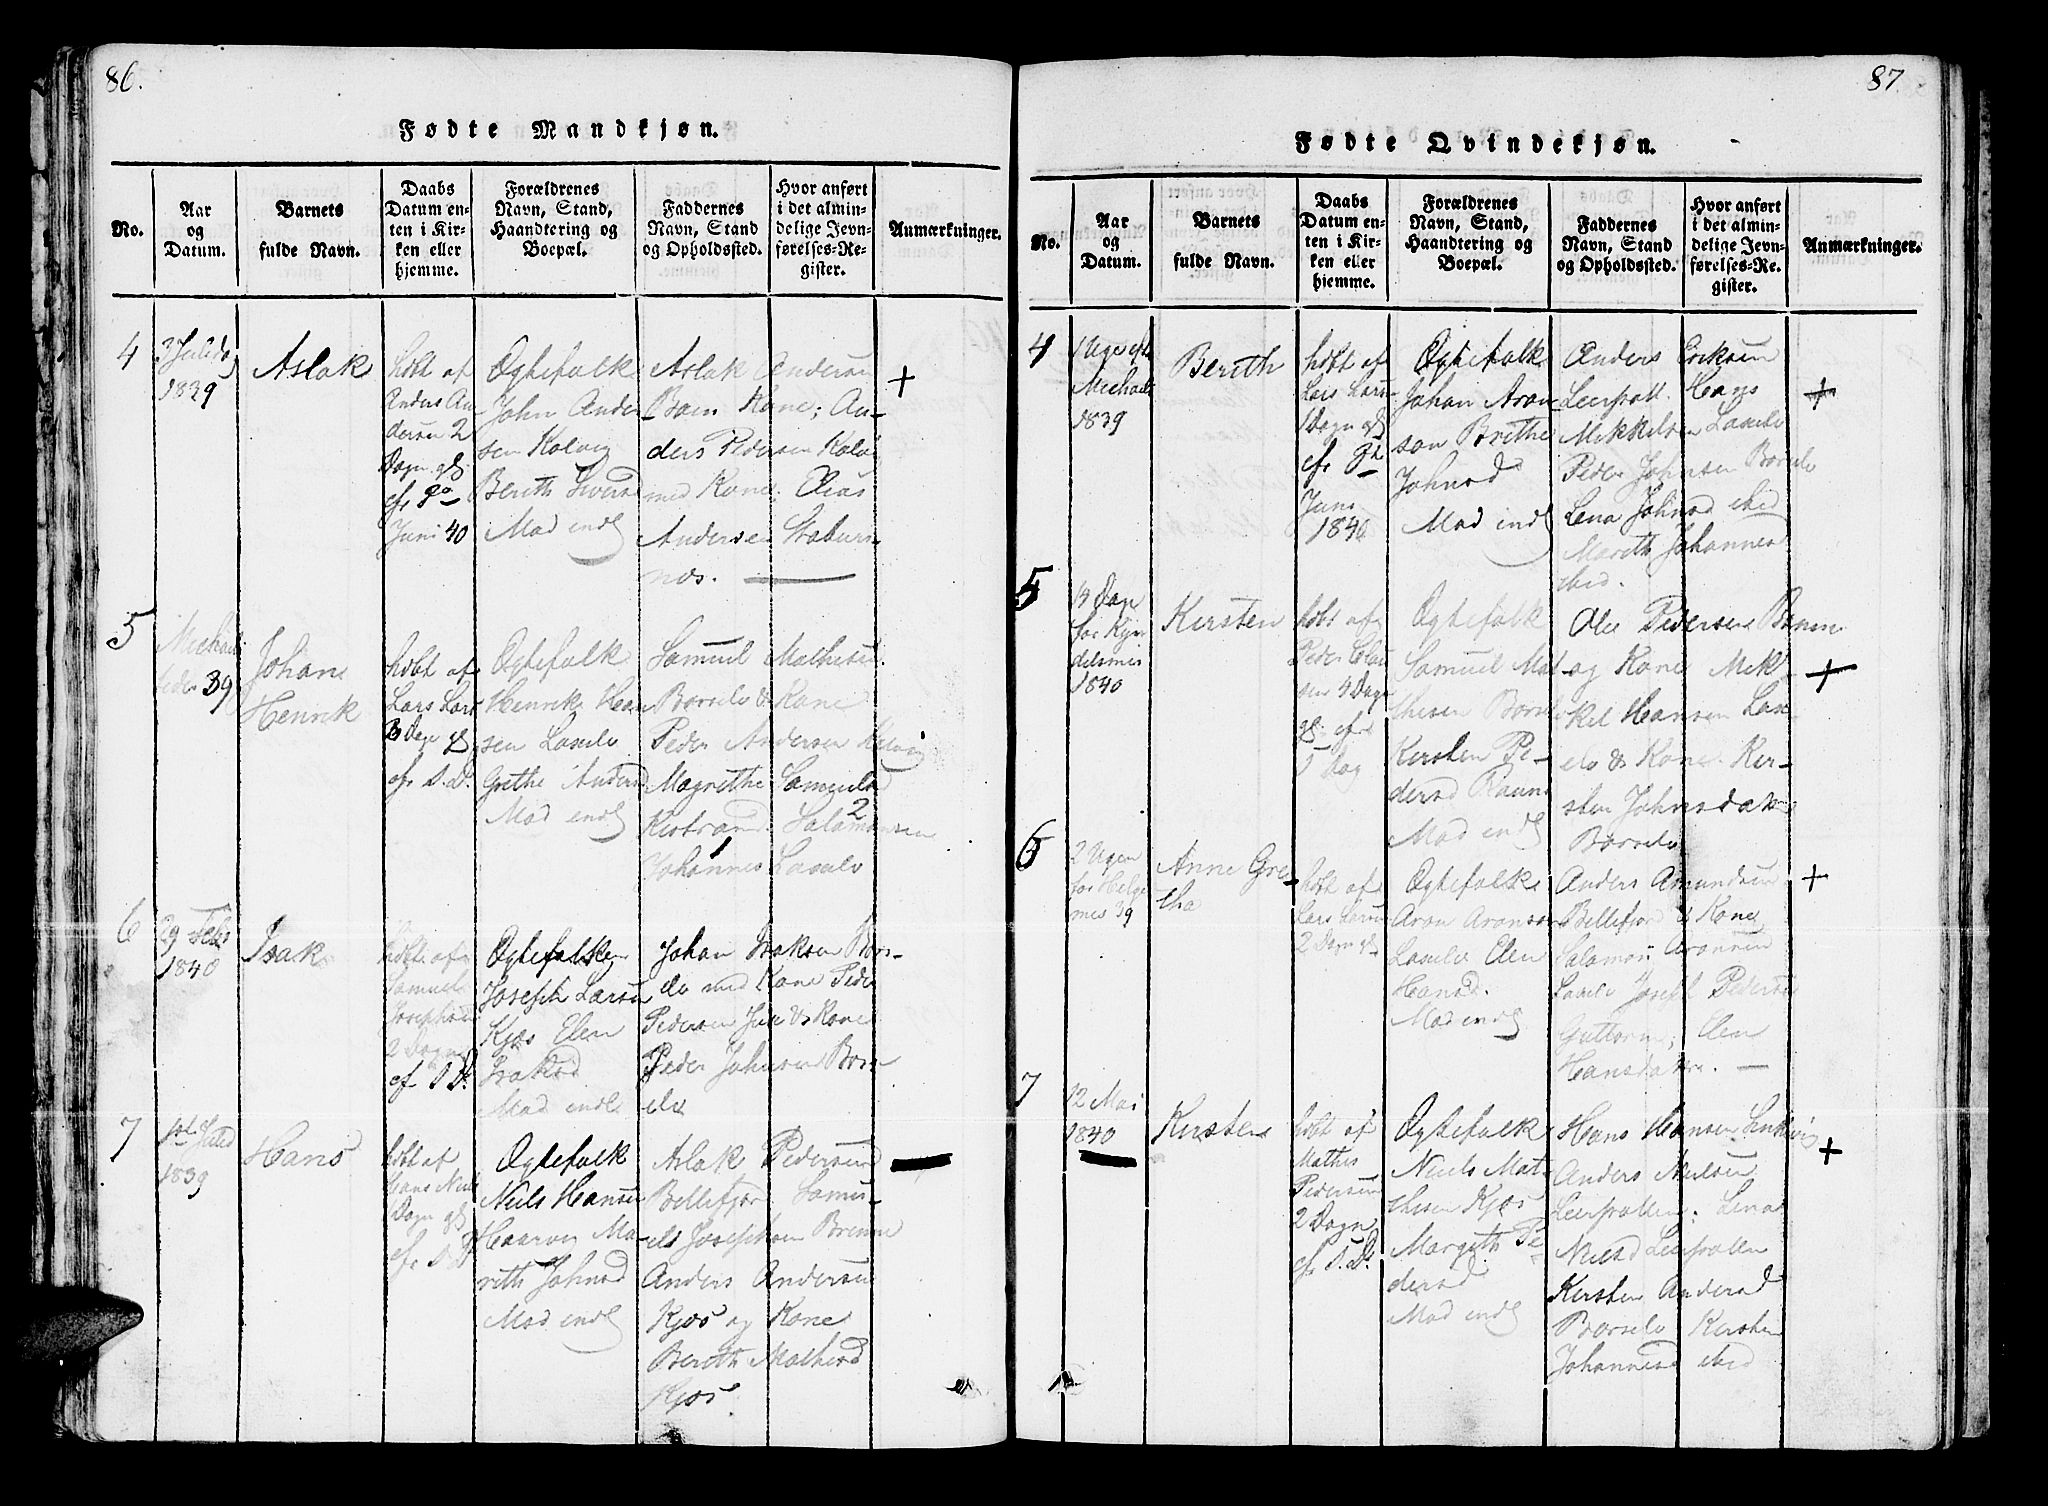 86.
Fødte Mandkjøn.
No.
Aar
og
Datum.
Barnets
fulde Navn.
Daabs
Datum en-
ten i Kir-
ken eller
hjemme.
Forældrenes
Navn, Stand,
Haandtering og
Boepæl.
Faddernes
Navn, Stand
og Opholdssted.
Hvor anført
i det almin-
delige Jevn-
førelses-Re-
gister.
Anmærkninger.
4
3 Juleda
1839
Aslak
hdbt af
Anders An
dersen 2
Dagn gl
Juni 40
Ogtefolk
John Ander
sen Kolvig
Bereth Iversd
Mad indl
Aslak Andersen
Kone; An-
ders Pedersen
med Kone. Elias
Andersen
nes.
+
5
39
Johan
Henrik
hdbt af
Lars Lars
3 Dage gl
cfr S. D.
Ogtefolk
Henrik Han
sen Laxelv
Grethe Andersd
Mad indl
Samuel Mathesen
Borselv & Kone
Peder Andersen Kolvig
Magrethe Samuelsd
2
Kistrand. Salamonsen
1
Johannes Laxelv
6
29 Febr
1840
Isak
hdbt af
Samuel
Josephsen
2 Dagn
cfr S D.
Ogtefolk
Joseph Larsen
Kjæs Elen
Isaksd
Mad indl
Johan Isaksen Bors-
elv med Kone Peder
Pedersen & Kone
Peder Johnsen Bors
elv
7
1ste Juled
1839
Hans
hdbt af
Hans Niels
Dagn gl
cfr S D
Ogtefolk
Niels Hansen
Ma-
reth Johnsd
Mad indl
Aslak Pedersen
Billefjor. Samu-
els Josephsen
Anders Andersen
Kjæs og Kone
Bereth Mathisd
Kjæs.
87.
Fødte Qvindekjøn.
No.
Aar
og
Datum.
Barnets
fulde Navn.
Daabs
Datum en-
ten i Kir-
ken eller
hjemme.
Forældrenes
Navn, Stand,
Haandtering og
Boepæl.
Faddernes
Navn, Stand
og Opholdssted.
Hvor anført
i det almin-
delige Jevn-
førelses-Re-
gister.
Anmærkninger.
4
1 Uge eft
Michael
1839
Berith
hdbt af
Lars Larsen
1 Dagn gl
Juni
1840
Ogtefolk
Johan Aron
sen Brithe
Johnsd
Mad indl
Anders Eriksen
Leirpoll. Hans
Mikkelsen Laxelv
Peder Johnsen Borselv
Lena Johnsd ibid
Mareth Johannesd
ibid.
+
5
14 Dage
for Kyn
delsmis
1840
Kirsten
hdbt af
Peder Olau
sen 4 Dage
gl cfr
5 Dag
Ogtefolk
Samuel Mat
thesen Borselv
Kirsten Pe-
dersd
Mad indl
Ole Pedersen
og Kone Mik
kel Hansen Lax-
elv & Kone. Kir-
sten Johnsdatter
Borselv
+
6
2 Uger
for Helge
mes 39
Anne Gre-
tha
hdbt af
Lars Larsen
2 Dagn gl
Ogtefolk
Aron Aronsen
Laxelv Elen
Hansd.
Mad indl
Anders Amundsen
Billefjord & Kone
Salamon Aronsen
Laxelv Joseph Pedersen
Guttorm; Elen
Hansdatter.
+
7
12 Mai
1840
Kirsten
hdbt af
Mathis
Pedersen
2 Dagn
cfr S. D.
Ogtefolk
Niels Mat
thesen Kjæs
Margith Pe
dersd
Mad indl
Hans Hansen
Anders Nielsen
Leirpollen; Lena
Nielsd Leirpollen
Kirsten Andersd
Borselv Kirsten
Johannesd ibid
+